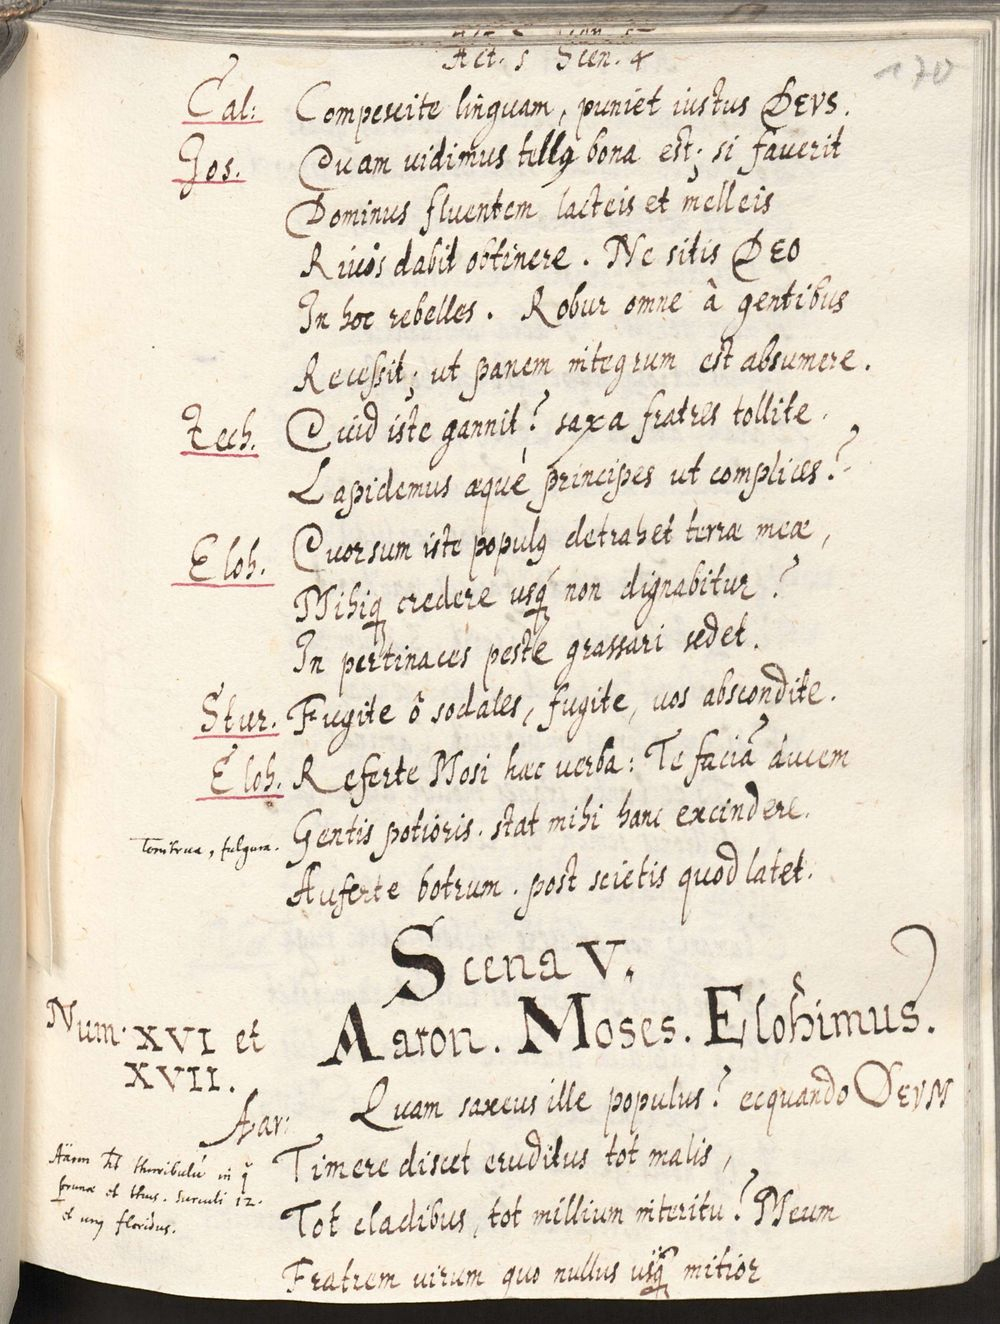 Act. 5 Scen. 4
170
Cal: Compescite linguam, puniet iustus DEVS.
Jos. Quam uidimus tellq bona est; si fauerit
Dominus fluentem lacteis et melleis
Riuos dabit obtinere. Ne sitis DEO
In hoc rebelles. Robur omne à gentibus
Recessit; ut panem integrum est absumere.
Zech. Quid iste gannit? saxa fratres tollite.
Lapidemus aequè principes ut complices?
Eloh. Quorsum iste populq detrahet terrae meae,
Mihiq credere usq non dignabitur?
In pertinaces peste grassari sedet.
Stur. Fugite ô sodales, fugite, uos abscondite.
Eloh. Referte Mosi haec uerba: Te faciã ducem
Gentis potioris. stat mihi hanc excindere.
Tonitrua, fulgura.
Auferte botrum. post scietis quod latet.
Scena V.
Aaron. Moses. Elohimus.
Num. XVI et
XVII.
Aar: Quam saxeus ille populus? ecquando DEVM
Timere discet eruditus tot malis,
Aaron ht thuribulũ in q
prunae et thus. Surculi 12.
et unq floridus.
Tot cladibus, tot millium interitu? Meum
Fratrem uirum quo nullus usq mitior